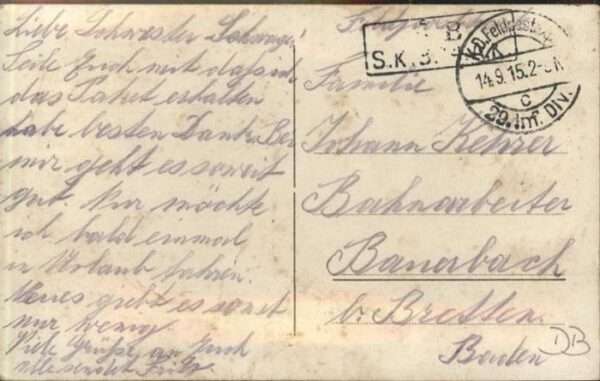 Liebe Schwester Schwager
Teile Euch mit daß ich
das Paket erhalten
habe besten Dank. Bei
mir geht es soweit
gut. Nur möchte
ich bald einmal
in Urlaub fahren.
Neues geht es sonst
nur wenig.
Viele Grüße an Euch
alle sendet Fritz
Feldpost
B
S.K.B.
K.D. Feldpost
14.9.15.2-3N
c
29. Inf. DIV.
Familie
Johann Kehrer
Bahnarbeiter
Bauerbach
b. Bretten.
Baden
DB